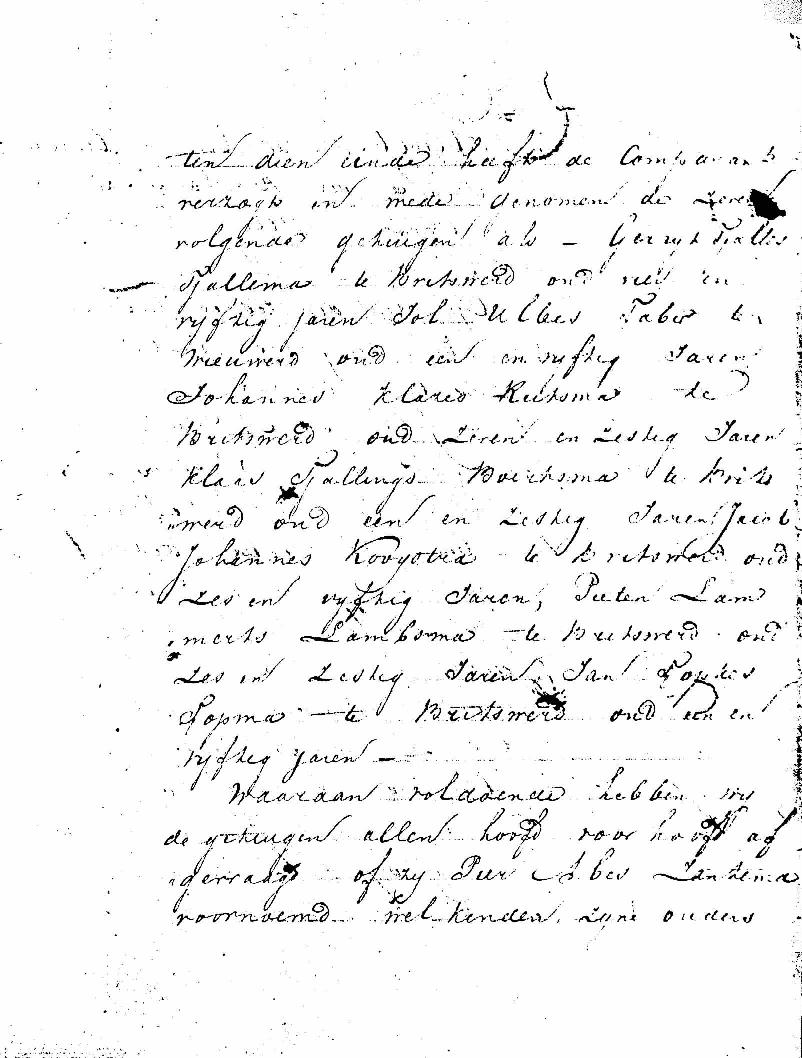 ten dien einde heeft de Comparant
verzogt en mede genomen de zeven
volgende getuigen als – Gerryt Tjalles
Tjallema te Britswerd oud vier en
vyftig jaren Jol Ulbes Faber te
Wieuwerd oud een en vyftig Jaren
Johannes Klazes Reitsma te
Britswerd oud zeven en zestig Jaren
Klaas Tjallings Boersma te Brits
werd oud een en zestig Jaren Jacob
Johannes Kooystra te Britswerd oud
zes en vyftig Jaren, Pieter Lam
merts Lambsma te Britswerd oud
zes en zestig Jaren Jan Fopkes
Fopma te Britswerd oud een en
vyftig jaren –
Waaraan voldoende hebben wy
de getuigen allen hoofd voor hoofd af
gevraagt of zy Pier Abes Lantema
voornoemd wel kenden, zyne ouders